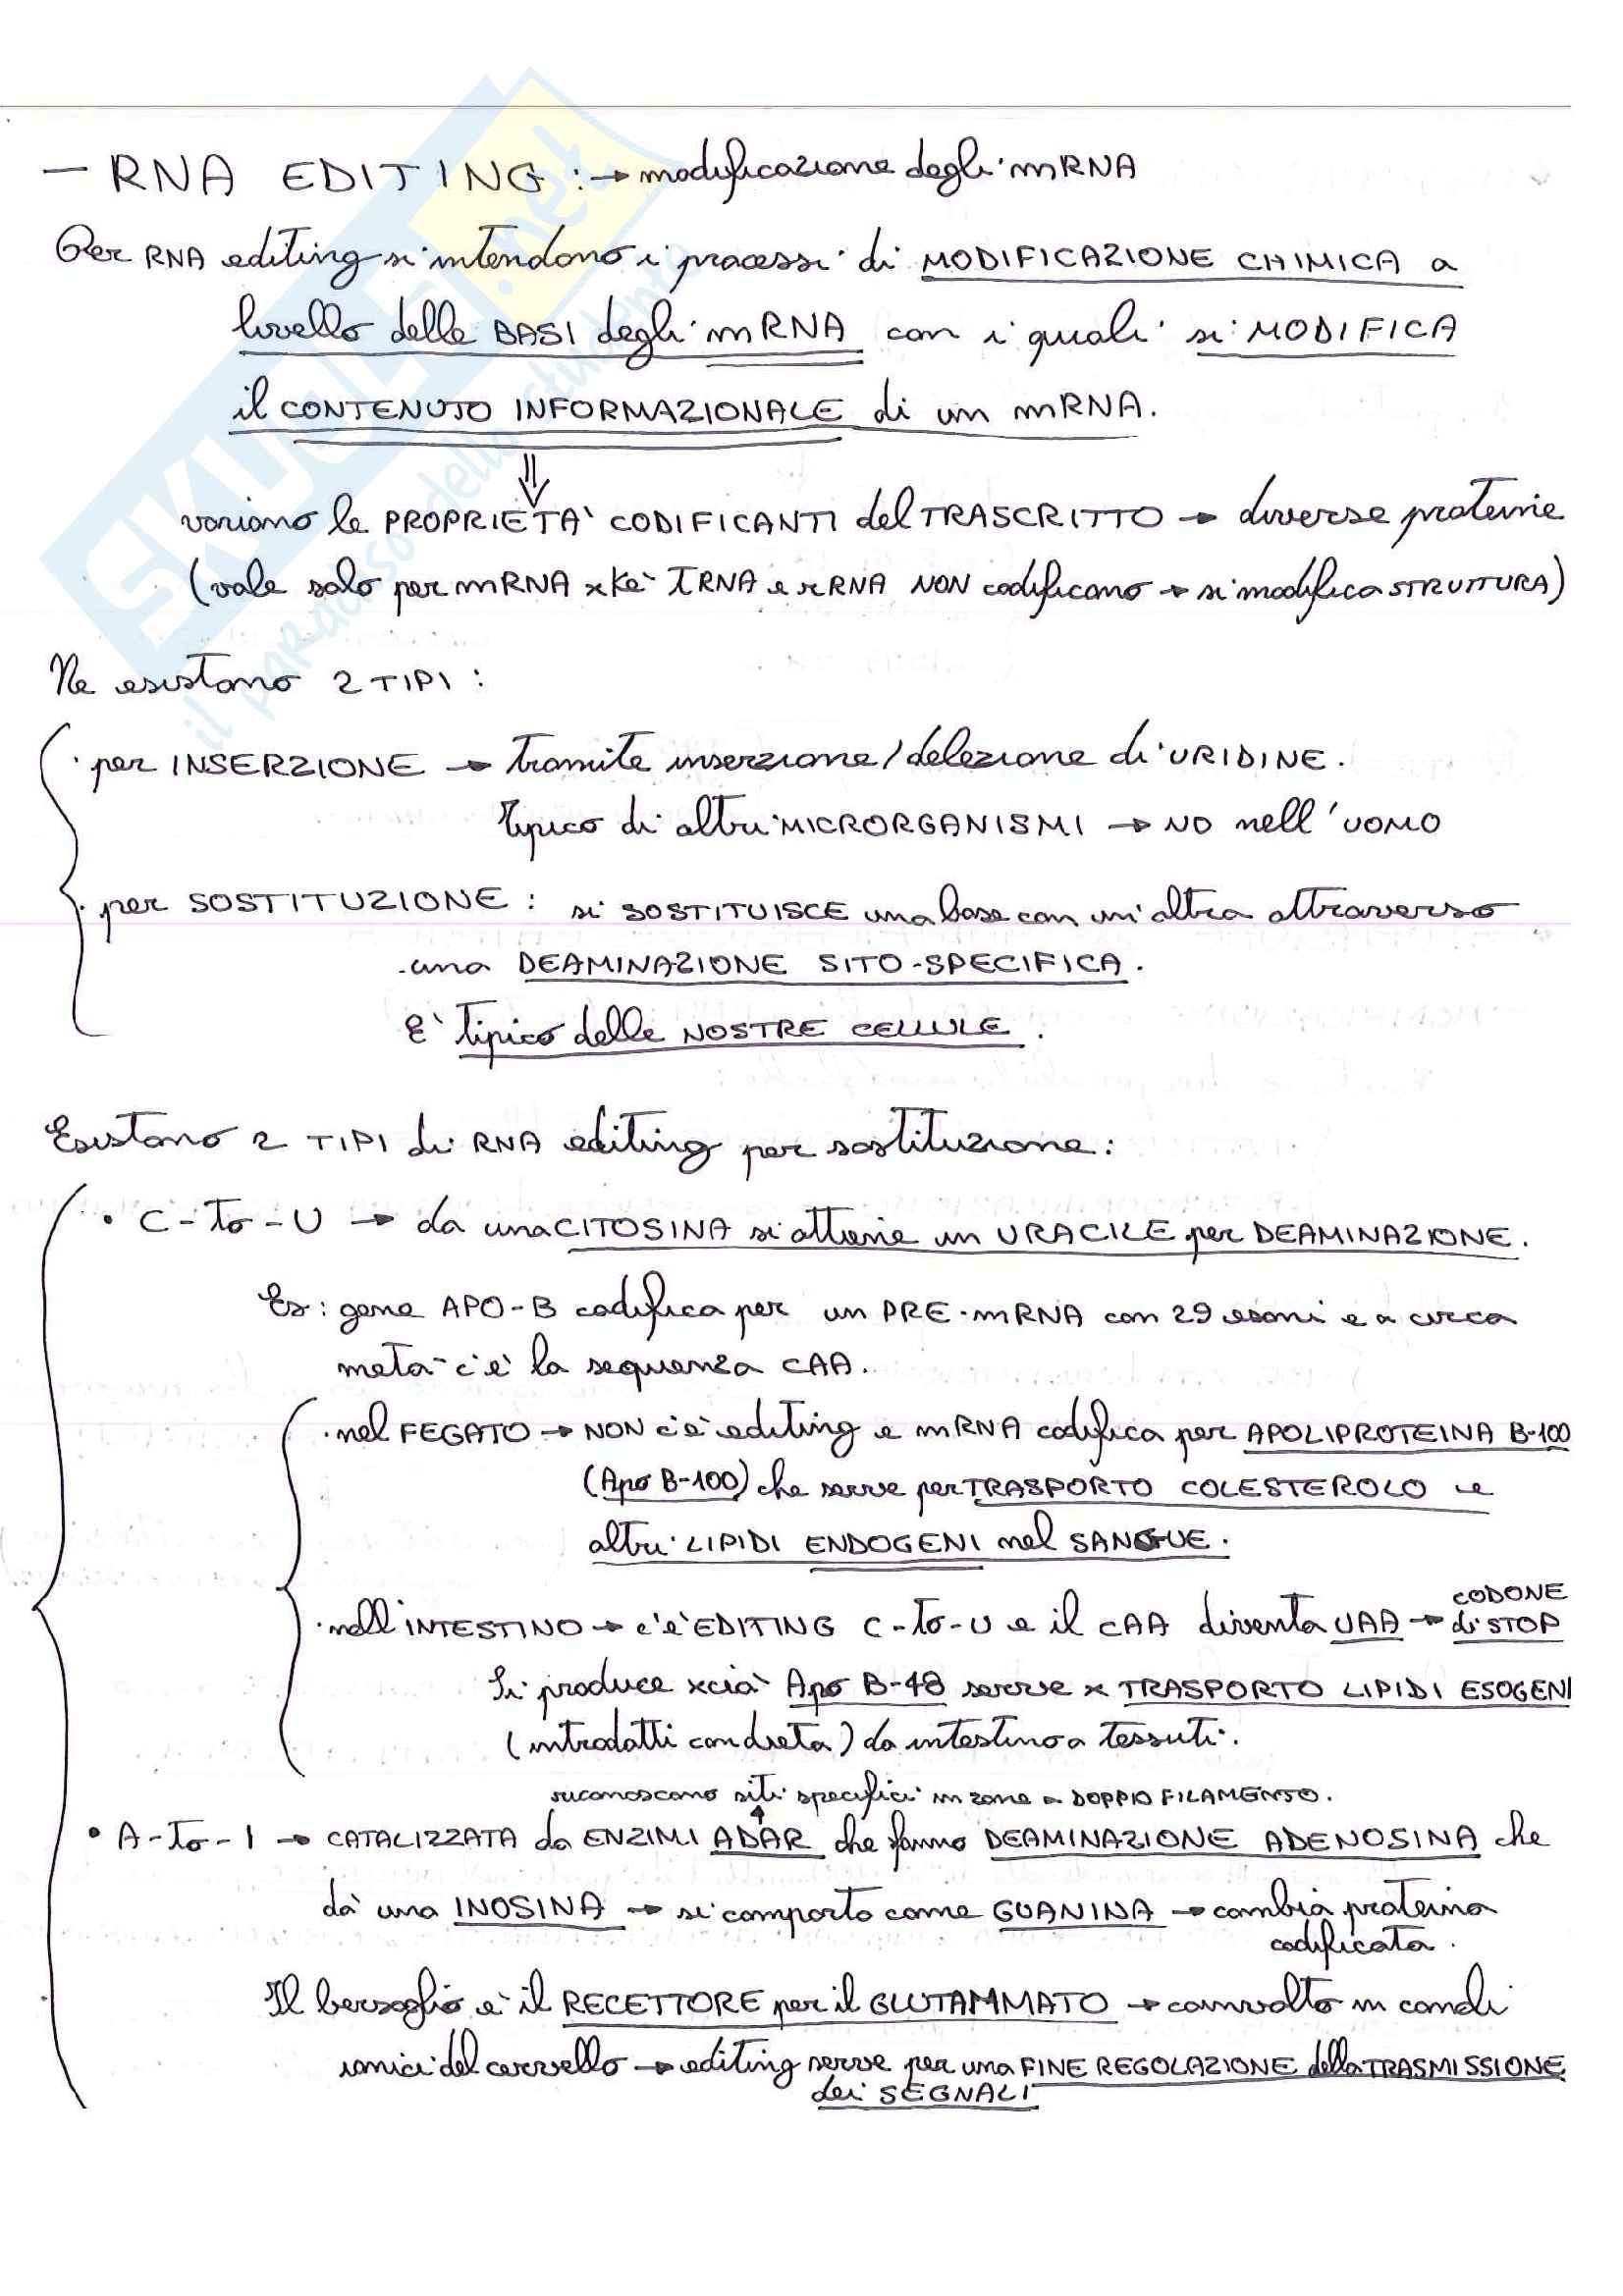 — RNA EDITING : → modificazione degli mRNA
Per RNA editing si intendono i processi di MODIFICAZIONE CHIMICA a
livello delle BASI degli mRNA con i quali si MODIFICA
il CONTENUTO INFORMAZIONALE di un mRNA.
⇓
variano le PROPRIETA' CODIFICANTI del TRASCRITTO → diverse proteine
(vale solo per mRNA xkè tRNA e rRNA NON codificano → si modifica STRUTTURA)
Ne esistono 2 TIPI :
· per INSERZIONE → tramite inserzione/delezione di URIDINE.
Tipico di altri MICRORGANISMI → NO nell'UOMO
· per SOSTITUZIONE : si SOSTITUISCE una base con un'altra attraverso
una DEAMINAZIONE SITO-SPECIFICA.
E' tipico delle NOSTRE CELLULE.
Esistono 2 TIPI di RNA editing per sostituzione :
• C-to-U → da una CITOSINA si ottiene un URACILE per DEAMINAZIONE.
Es : gene APO-B codifica per un PRE-mRNA con 29 esoni e a circa
metà c'è la sequenza CAA.
· nel FEGATO → NON c'è editing e mRNA codifica per APOLIPROTEINA B-100
(Apo B-100) che serve per TRASPORTO COLESTEROLO e
altri LIPIDI ENDOGENI nel SANGUE.
· nell'INTESTINO → c'è EDITING C-to-U e il CAA diventa UAA → CODONE
di STOP
Si produce xciò Apo B-48 serve x TRASPORTO LIPIDI ESOGENI
(introdotti con dieta) da intestino a tessuti.
riconoscono siti specifici in zone a DOPPIO FILAMENTO.
• A-to-I → CATALIZZATA da ENZIMI ADAR che fanno DEAMINAZIONE ADENOSINA che
dà una INOSINA → si comporta come GUANINA → cambia proteina
codificata.
Il bersaglio è il RECETTORE per il GLUTAMMATO → coinvolto in canali
ionici del cervello → editing serve per una FINE REGOLAZIONE della TRASMISSIONE
dei SEGNALI
SKUOLA.net
il paradiso dello studente